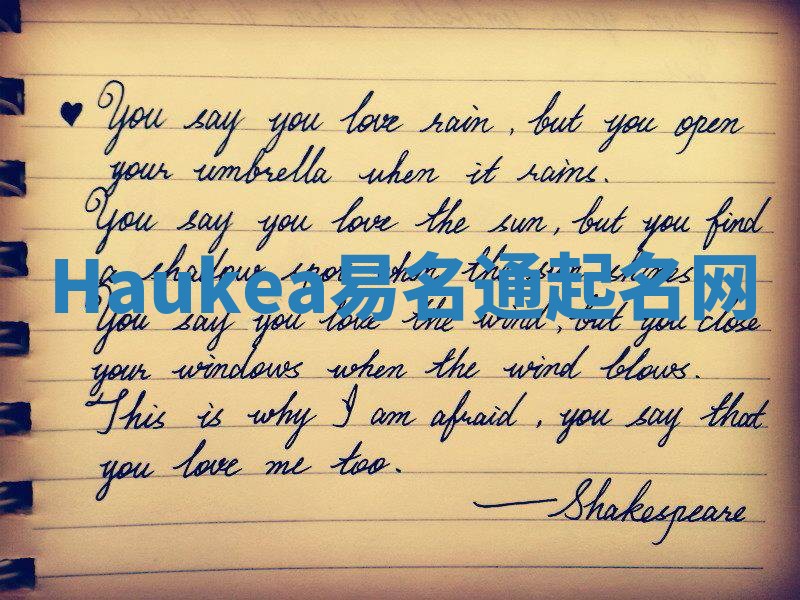 ♥ You say you love rain, but you open
your umbrella when it rains.
You say you love the sun, but you find
a shadow spot when the sun shines
Haukea易名通起名网
You say you love the wind, but you close
your windows when the wind blows.
This is why I am afraid, you say that
you love me too.
— Shakespeare